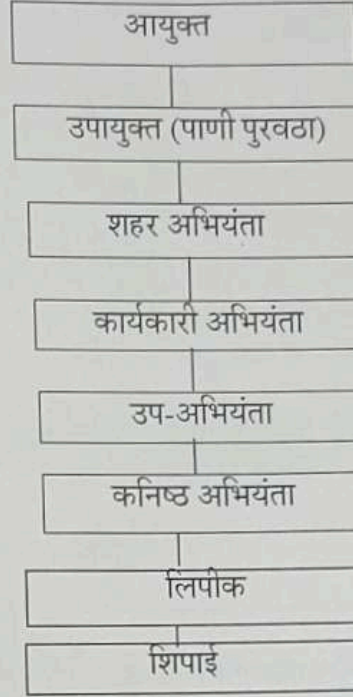 आयुक्त
उपायुक्त (पाणी पुरवठा)
शहर अभियंता
कार्यकारी अभियंता
उप-अभियंता
कनिष्ठ अभियंता
लिपीक
शिपाई